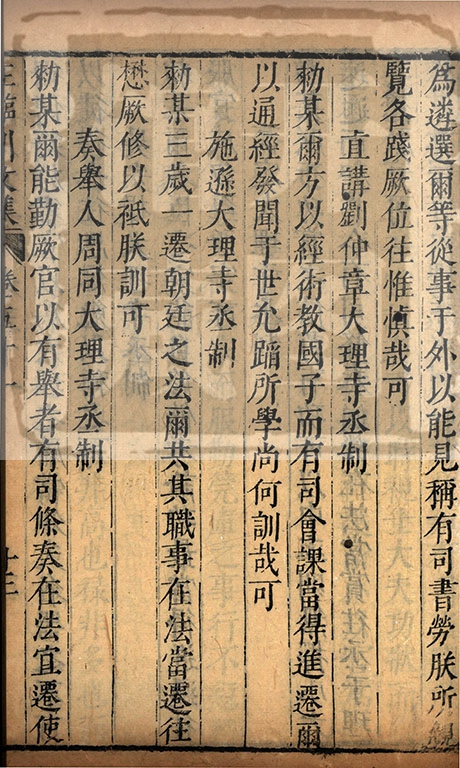 為遴選爾等從事于外以能見稱有司書勞朕所
覽各踐厥位往惟慎哉可
直講劉仲章大理寺丞制
勑某爾方以經術教國子而有司會課當得進遷爾
以通經發聞于世允蹈所學尚何訓哉可
施遜大理寺丞制
勑某三歲一遷朝廷之法爾共其職事在法當遷往
懋厥修以祗朕訓可
奏舉人周同大理寺丞制
勑某爾能勤厥官以有舉者有司條奏在法宜遷使
王臨川文集 卷五十一 十三